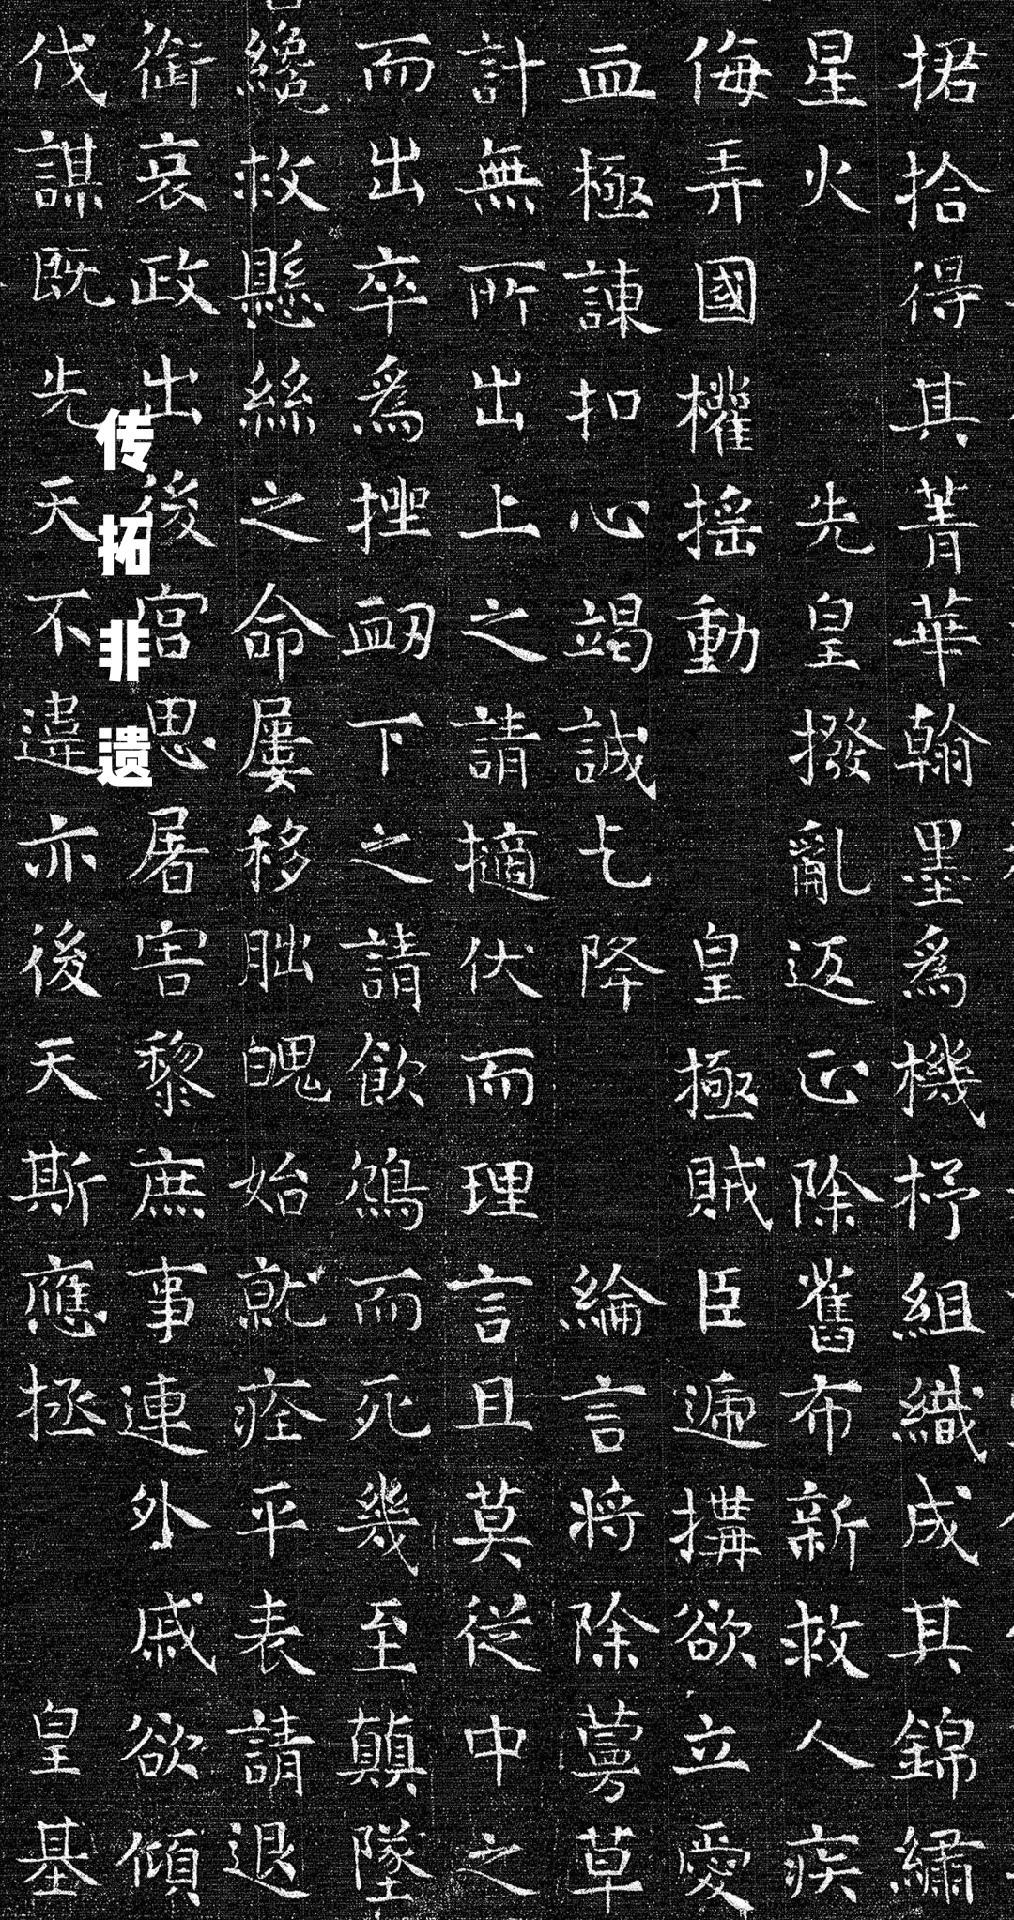 捃拾得其菁華翰墨爲機杼組織成其錦繡
星火先皇撥亂返正除舊布新救人疾
侮弄國權搖動皇極賊臣遞搆欲立愛
血極諫扣心竭誠乞降綸言將除蔓草
計無所出上之請擿伏而理言且莫從中之
而出卒爲挫衂下之請飲鴆而死幾至顛墜
纔救懸絲之命屢移朏魄始就痊平表請退
銜哀政出後宮思屠害黎庶事連外戚欲傾
伐謀既先天不違亦後天斯應拯皇基
传拓非遗